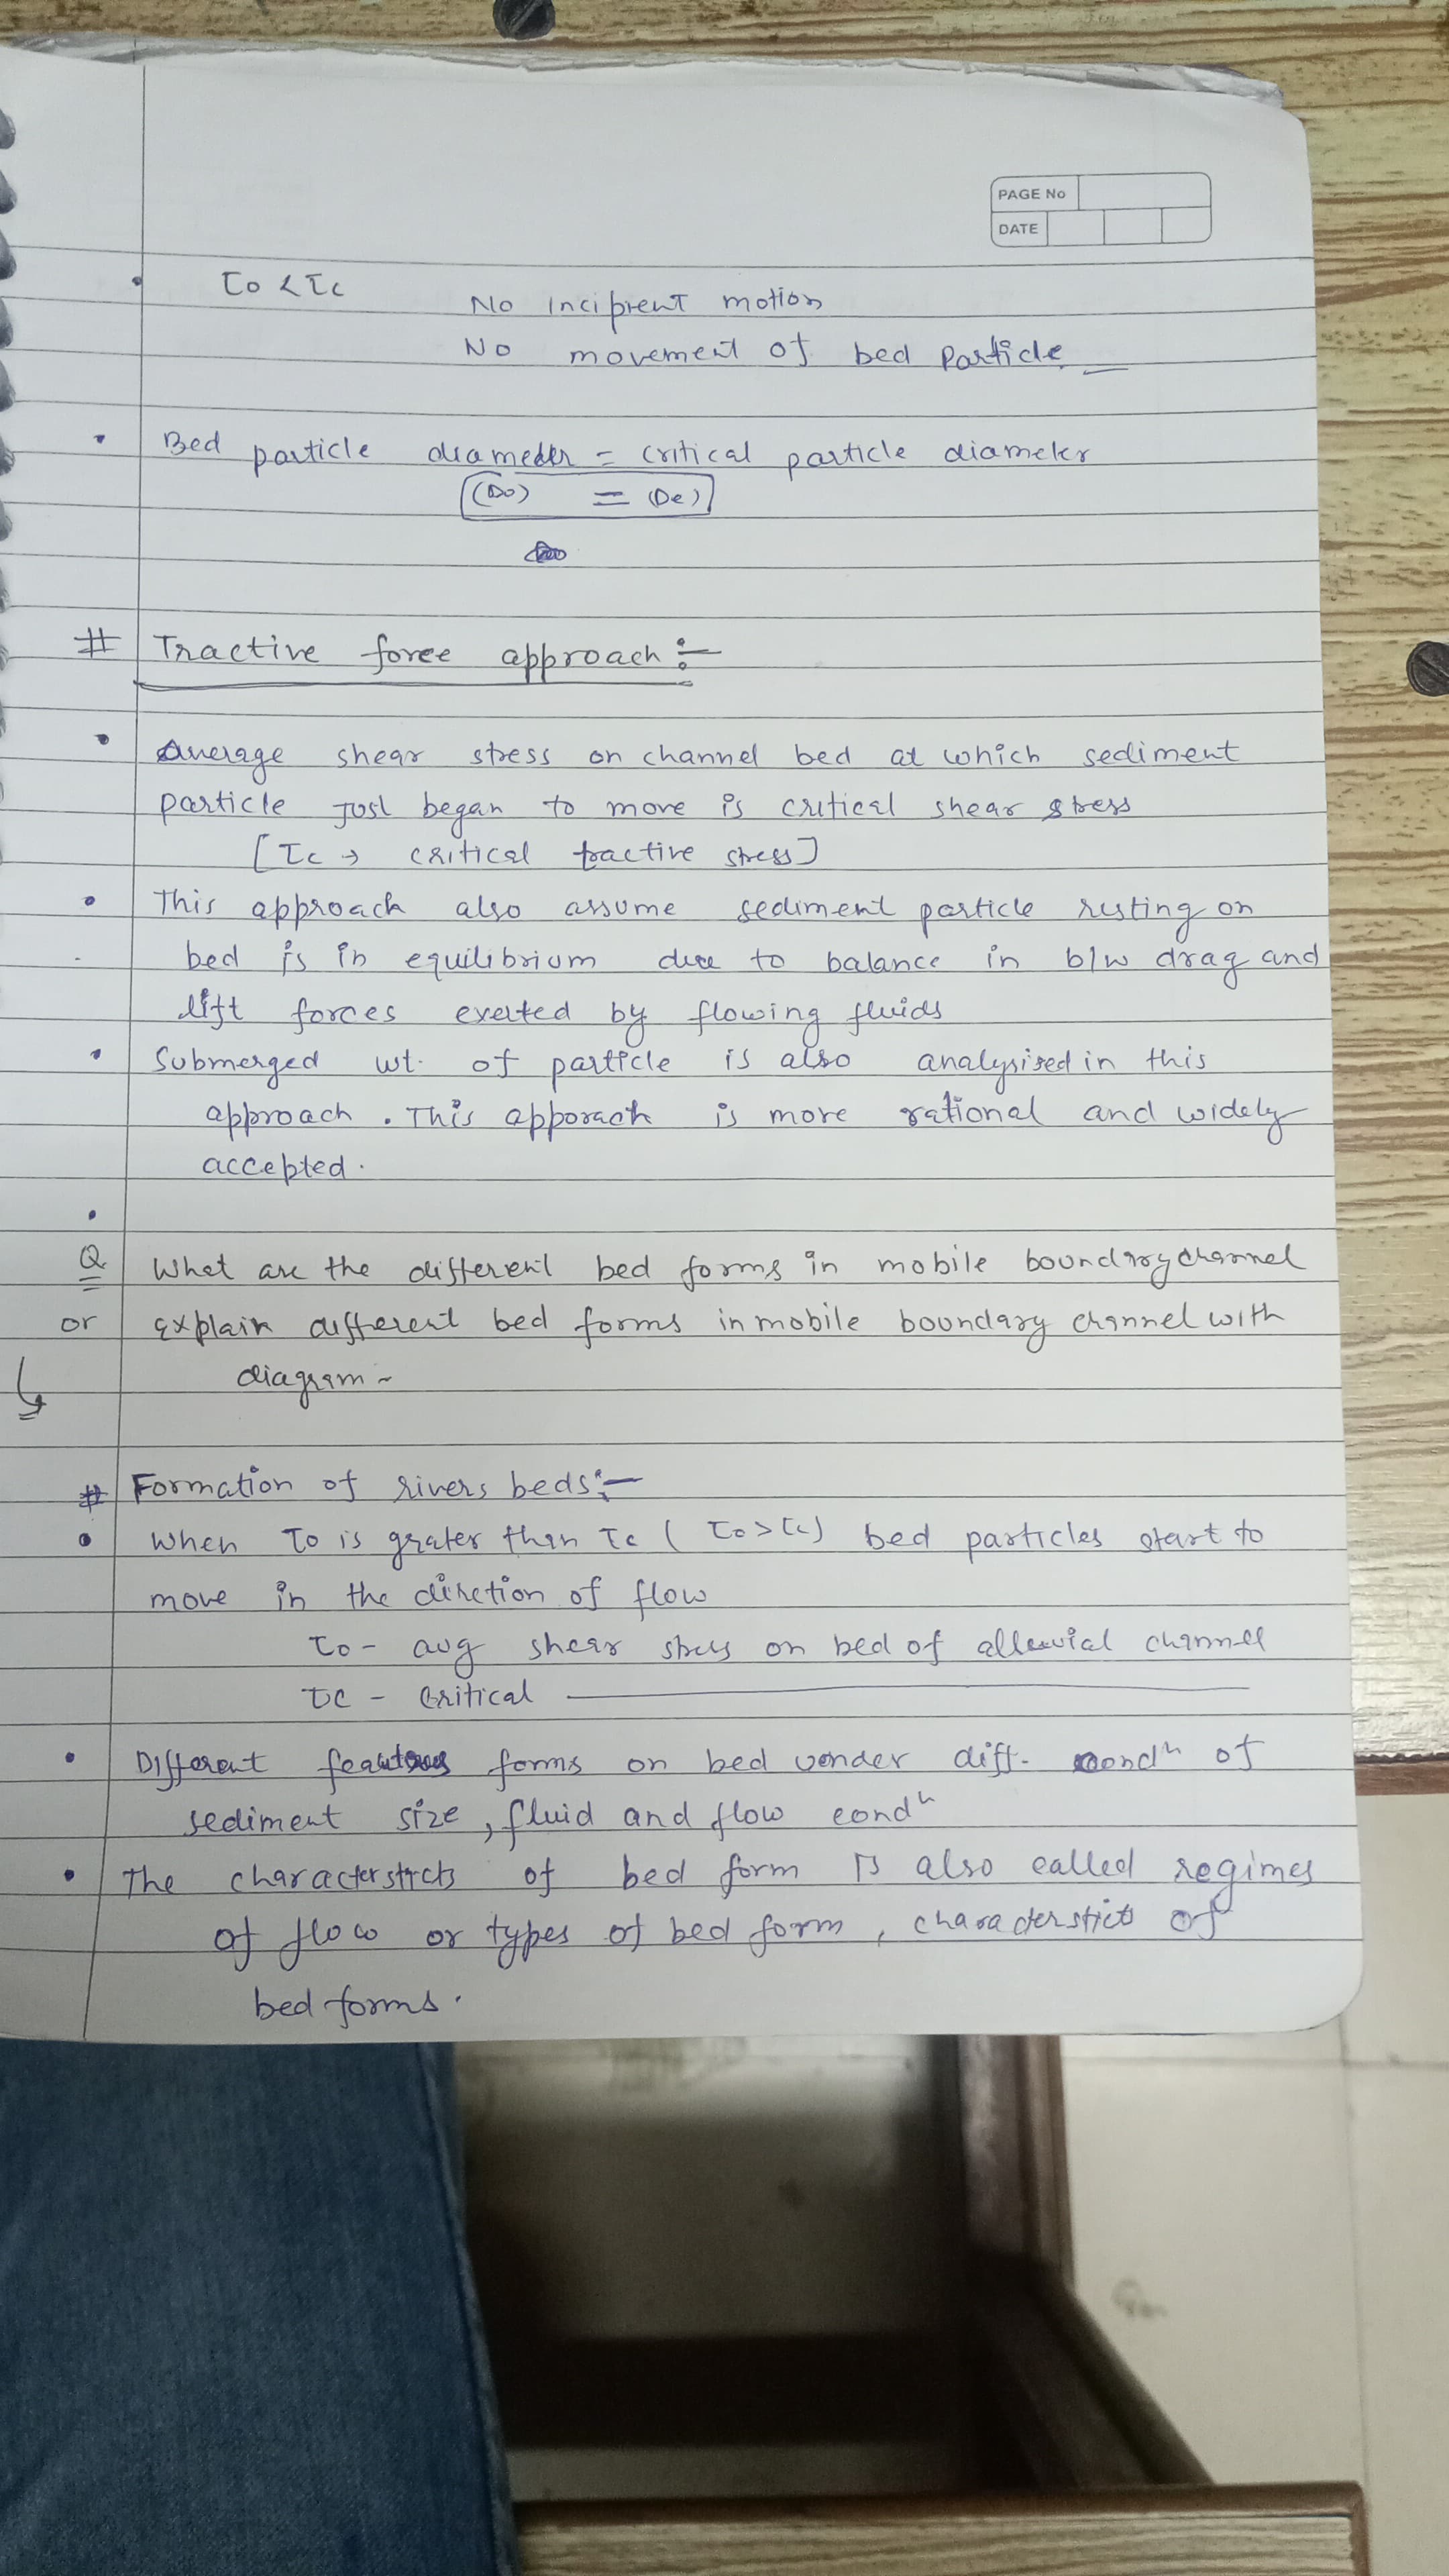 PAGE No
DATE
• τo < τc
No incipient motion
No movement of bed Particle
• Bed particle diameter = critical particle diameter
(Do) = (Dc)
# Tractive force approach :-
• Average shear stress on channel bed at which sediment
particle just began to move is critical shear stress
[τc → critical tractive stress]
• This approach also assume sediment particle resting on
bed is in equilibrium due to balance in b/w drag and
lift forces exerted by flowing fluids
• Submerged wt. of particle is also analysised in this
approach. This apporach is more rational and widely
accepted.
•
Q What are the different bed forms in mobile boundroy channel
or explain different bed forms in mobile boundary channel with
diagram -
# Formation of rivers beds:-
• When τo is grater than τc ( τo > τc) bed particles start to
move in the dirction of flow
τo - avg shear stress on bed of alluvial channel
τc - Critical ———
• Different features forms on bed uonder diff. condn of
sediment size, fluid and flow condn
• The characterstics of bed form is also called regimes
of flow or types of bed form, characterstics of
bed forms.